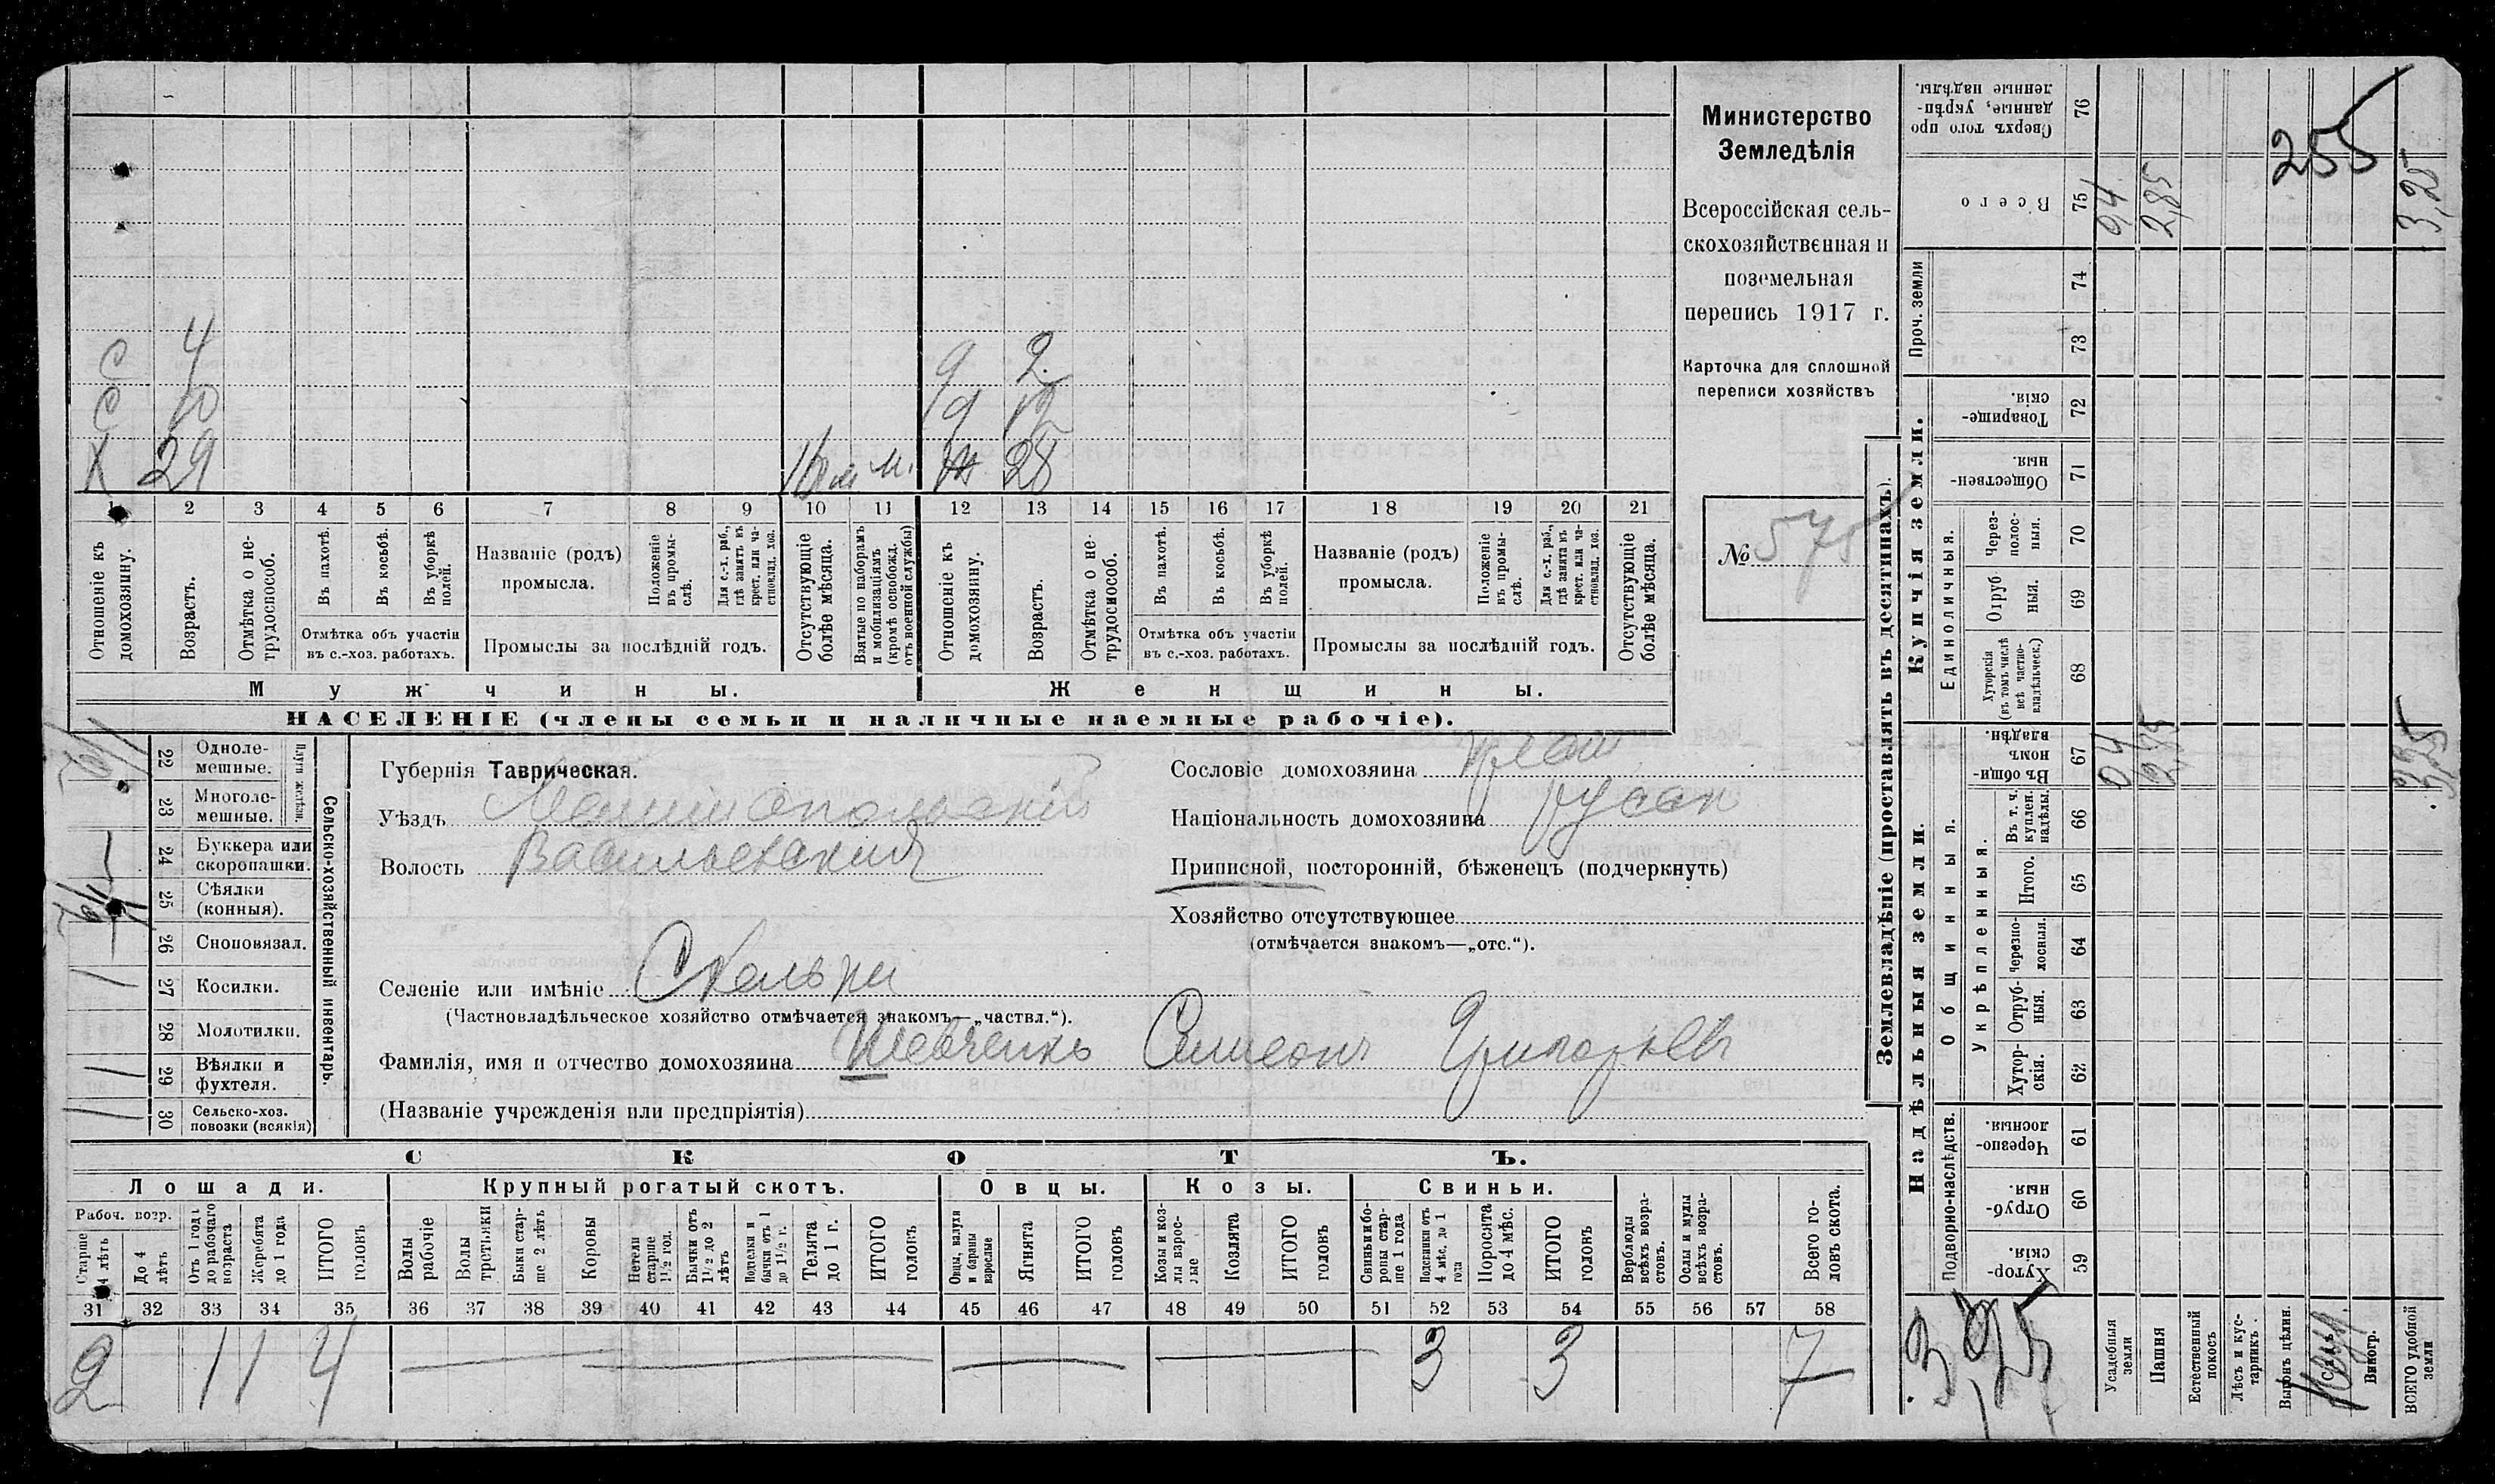 Министерство
Земледѣлія
Всероссійская сель-
скохозяйственная и
поземельная
перепись 1917 г.
Карточка для сплошной
переписи хозяйствъ
№ 575
С 4 9 2
С 10 9 12
Х 29 м. 28
1 2 3 4 5 6 7 8 9 10 11 12 13 14 15 16 17 18 19 20 21
Отношеніе къ домохозяину.
Возрастъ.
Отмѣтка о не-трудоспособ.
Въ пахотѣ.
Въ косьбѣ.
Въ уборкѣ полей.
Отмѣтка объ участіи
въ с.-хоз. работахъ.
Названіе (родъ)
промысла.
Положеніе въ промы-слѣ.
Для с.-х. раб., гдѣ занятъ въ крест. или ча-стновлад. хоз.
Промыслы за послѣдній годъ.
Отсутствующіе болѣе мѣсяца.
Взятые по наборамъ и мобилизаціямъ (кромѣ освобожд. отъ военной службы)
Отношеніе къ домохозяину.
Возрастъ.
Отмѣтка о не-трудоспособ.
Въ пахотѣ.
Въ косьбѣ.
Въ уборкѣ полей.
Отмѣтка объ участіи
въ с.-хоз. работахъ.
Названіе (родъ)
промысла.
Положеніе въ промы-слѣ.
Для с.-х. раб., гдѣ занята въ крест. или ча-стновлад. хоз.
Промыслы за послѣдній годъ.
Отсутствующіе болѣе мѣсяца.
Мужчины. Женщины.
НАСЕЛЕНІЕ (члены семьи и наличные наемные рабочіе).
22 Одноле-мешные.
23 Многоле-мешные.
Плуги желѣзн.
24 Буккера или скоропашки.
25 Сѣялки (конныя).
26 Сноповязал.
27 Косилки.
28 Молотилки.
29 Вѣялки и фухтеля.
30 Сельско-хоз. повозки (всякія)
Сельско-хозяйственный инвентарь.
Губернія Таврическая.
Уѣздъ Мелитопольскій
Волость Васильевская
Селеніе или имѣніе Скельки
(Частновладѣльческое хозяйство отмѣчается знакомъ—„частвл.“).
Фамилія, имя и отчество домохозяина Шевченко Симеонъ Григорьев
(Названіе учрежденія или предпріятія)
Сословіе домохозяина крест
Національность домохозяина русск
Приписной, посторонній, бѣженецъ (подчеркнуть)
Хозяйство отсутствующее
(отмѣчается знакомъ—„отс.“).
СКОТЪ.
Лошади. Крупный рогатый скотъ. Овцы. Козы. Свиньи.
Рабоч. возр.
Старше 4 лѣтъ
До 4 лѣтъ
Отъ 1 года до рабочаго возраста
Жеребята до 1 года
ИТОГО головъ
Волы рабочіе
Волы третьяки
Быки стар-ше 2 лѣтъ
Коровы
Нетели старше 1½ год.
Бычки отъ 1½ до 2 лѣтъ
Подтелки и бычки отъ 1 до 1½ г.
Телята до 1 г.
ИТОГО головъ
Овцы, валухи и бараны взрослые
Ягнята
ИТОГО головъ
Козы и коз-лы взрос-лые
Козлята
ИТОГО головъ
Свиньи и бо-ровы стар-ше 1 года
Подсвинки отъ 4 мѣс. до 1 года
Поросята до 4 мѣс.
ИТОГО головъ
Верблюды всѣхъ возра-стовъ.
Ослы и мулы всѣхъ возра-стовъ.
Всего го-ловъ скота.
31 32 33 34 35 36 37 38 39 40 41 42 43 44 45 46 47 48 49 50 51 52 53 54 55 56 57 58
2 1 1 4 3 3 7
Землевладѣніе (проставлять въ десятинахъ).
Надѣльныя земли.
Купчія земли.
Проч. земли
Подворно-наслѣдств.
Общинныя.
Укрѣпленныя.
Единоличныя.
Хутор-скія. 59
Отруб-ныя 60
Черезпо-лосныя. 61
Хутор-скія. 62
Отруб-ныя. 63
Черезпо-лосныя. 64
Итого. 65
Въ т. ч. куплен. надѣлы. 66
Въ общи-номъ владѣн. 67
Хуторскія (въ томъ числѣ всѣ частно-владѣльческ.) 68
Отруб ныя. 69
Через-полос-ныя. 70
Обществен-ныя. 71
Товарище-скія. 72
73
74
Всего 75
Сверхъ того про данные, укрѣп-ленные надѣлы. 76
Усадебныя земли 0,4 0,4
Пашня 2,85 2,85
Естественный покосъ
Лѣсъ и кус-тарникъ.
Выгонъ цѣлин.
Виногр.
ВСЕГО удобной земли 3,25 3,25
255